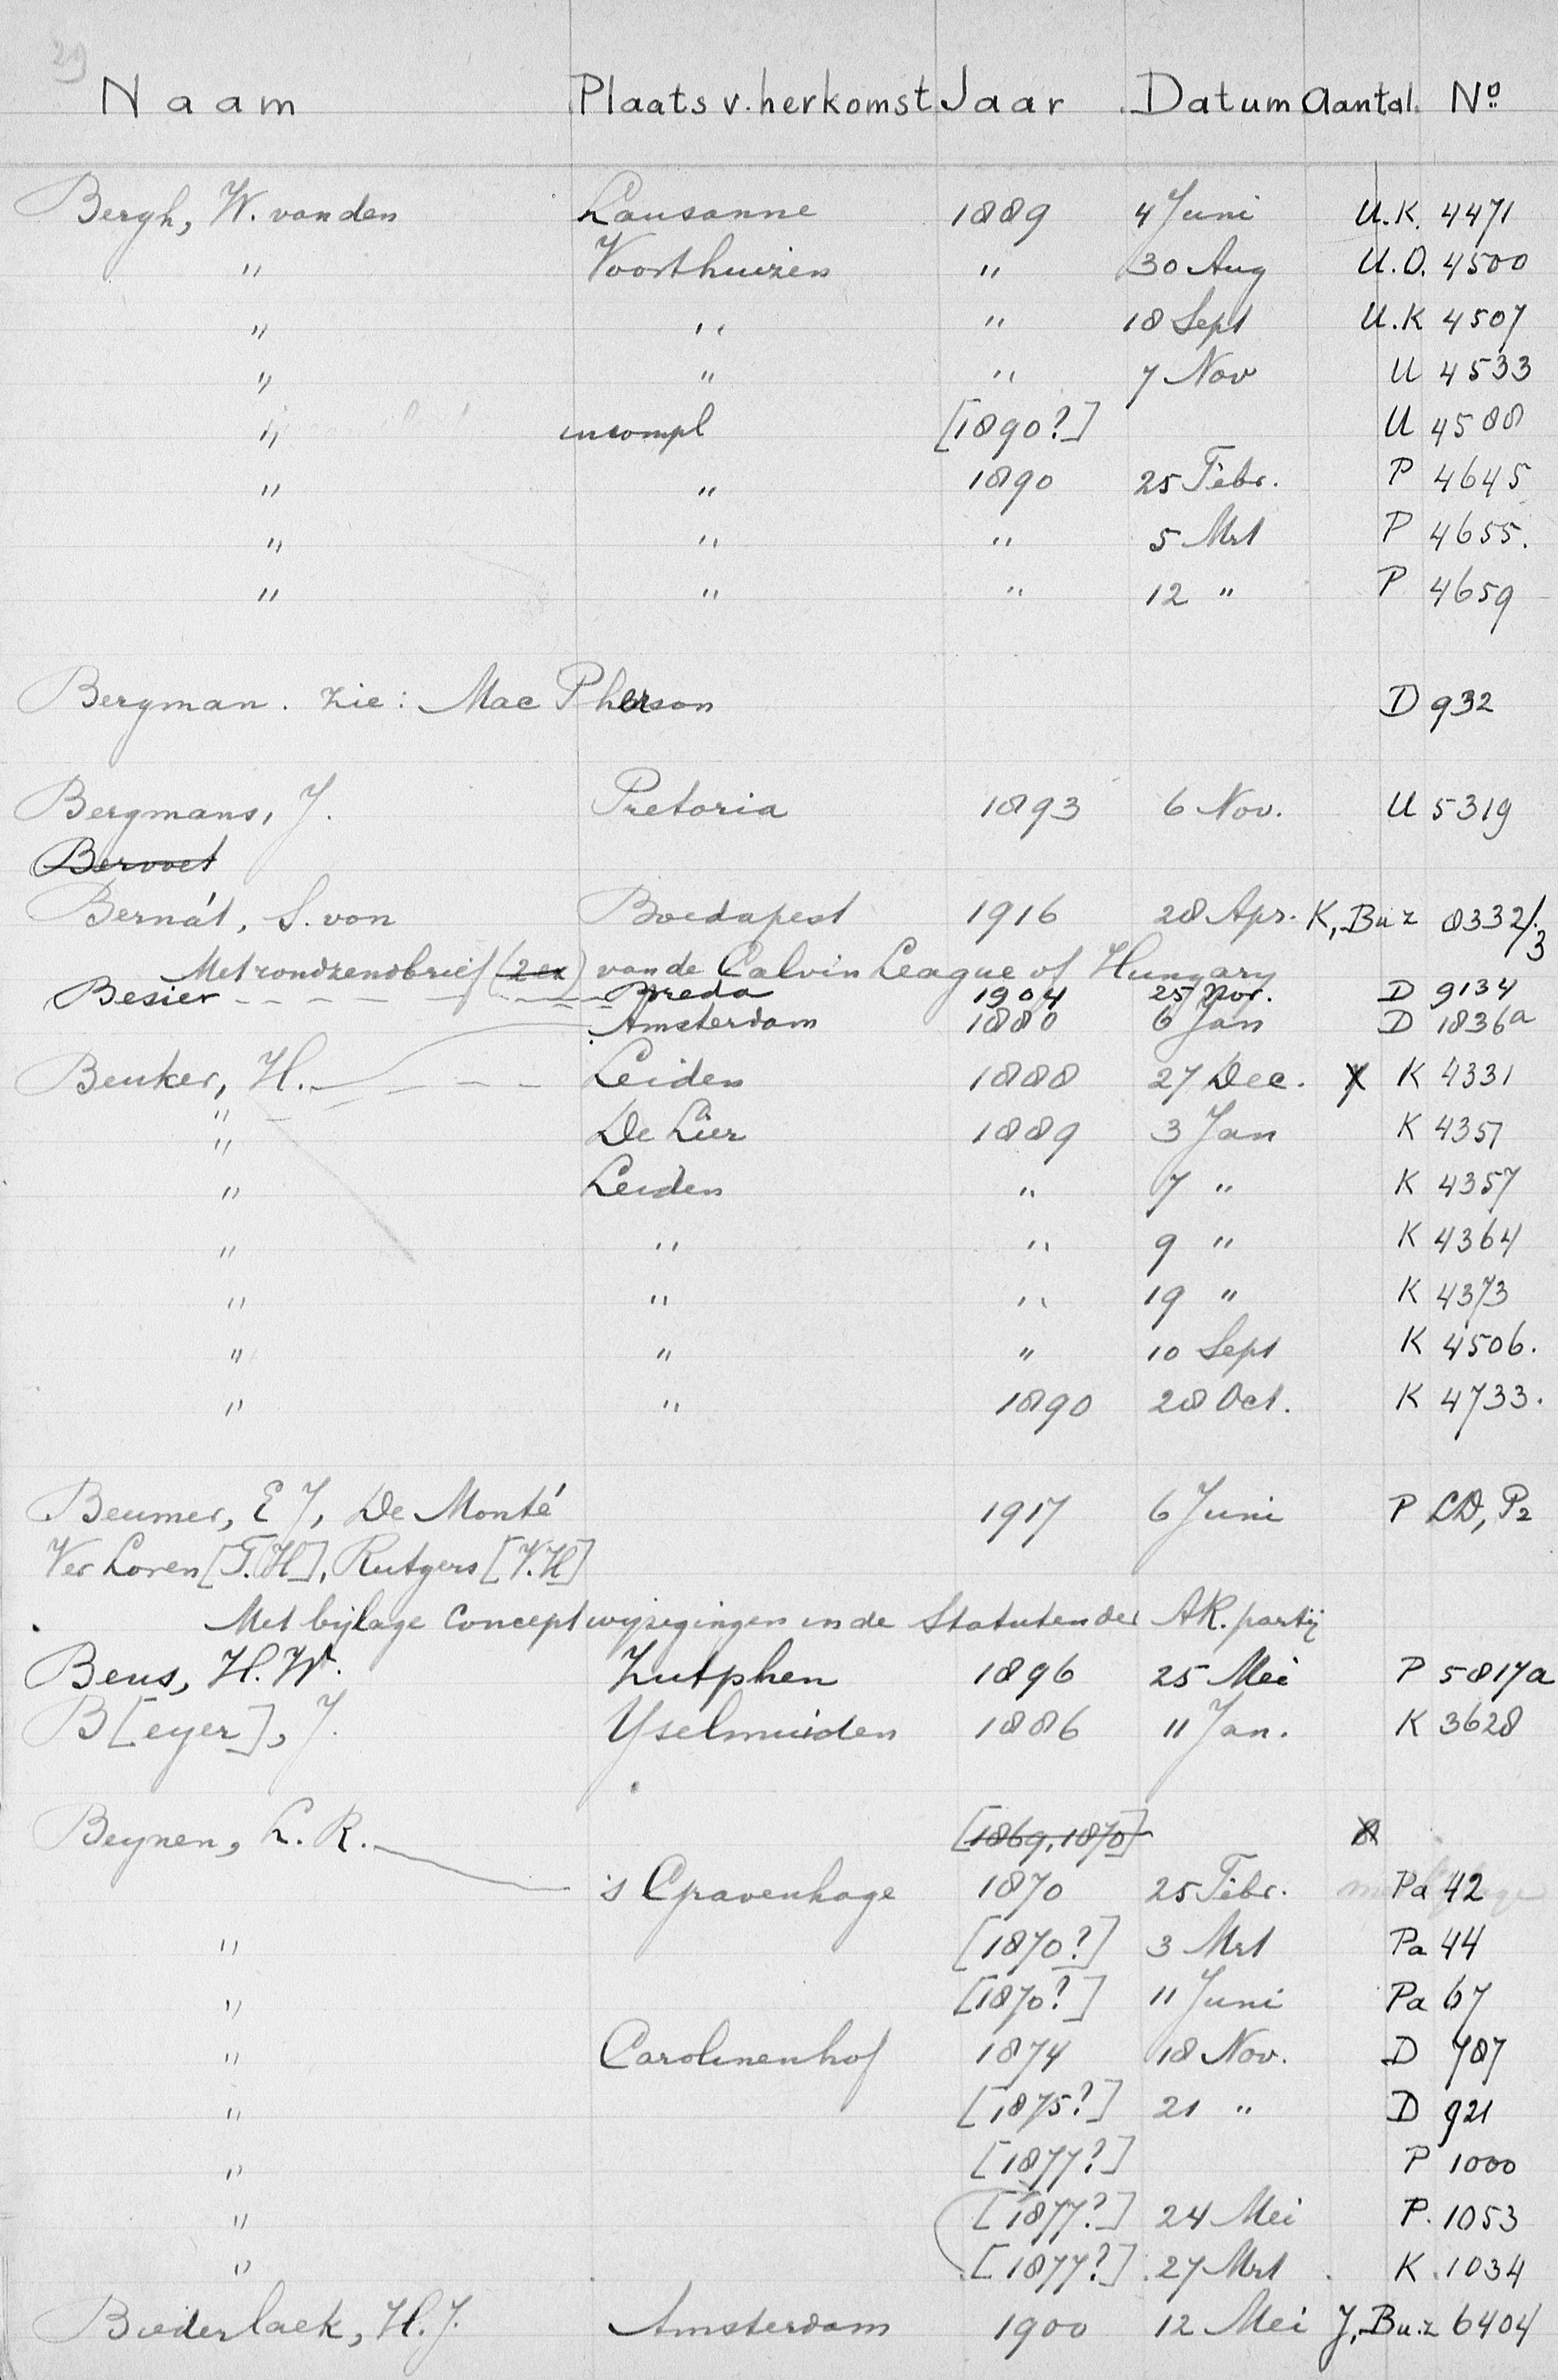 29
Naam Plaats v. herkomst Jaar Datum Aantal. Nº
Bergh, W. van den Lausanne 1889 4 Juni U.K. 4471
" Voorthuizen " 30 Aug U.D. 4500
" " " 18 Sept U.K 4507
" " " 7 Nov U 4533
" incompl [1890?] U 4588
" " 1890 25 Febr. P 4645
" " " 5 Mrt P 4655.
" " " 12 " P 4659
Bergman. zie: Mac Pherson D 932
Bergmans, J. Pretoria 1893 6 Nov. U 5319
Bervoet
Bernát, S. von Boedapest 1916 28 Apr. K, Bu z 8332/3
Met rondzendbrief (2 ex) van de Calvin League of Hungary
Besier Breda 1904 25 Nov. D 9134
Amsterdam 1880 6 Jan D 1836a
Beuker, H. Leiden 1888 27 Dec. K 4331
"
" De Lier 1889 3 Jan K 4351
" Leiden " 7 " K 4357
" " " 9 " K 4364
" " " 19 " K 4373
" " " 10 Sept K 4506.
" " 1890 28 Oct. K 4733.
Beumer, E J, De Monté 1917 6 Juni P LD, P2
Ver Loren [T.H], Rutgers [V.H]
Met bijlage Concept wijzigingen in de Statuten der AR. partij
Beus, H.W. Zutphen 1896 25 Mei P 5817a
B[eyer], J. Yselmuiden 1886 11 Jan. K 3628
Beynen, L. R. [1869, 1870]
's Gravenhage 1870 25 Febr. Pa 42
" [1870?] 3 Mrt Pa 44
" [1870?] 11 Juni Pa 67
" Carolinenhof 1874 18 Nov. D 787
" [1875?] 21 " D 921
" [1877?] P 1000
" [1877?] 24 Mei P. 1053
" [1877?] 27 Mrt K. 1034
Biederlack, H.J. Amsterdam 1900 12 Mei J, Bu.z 6404